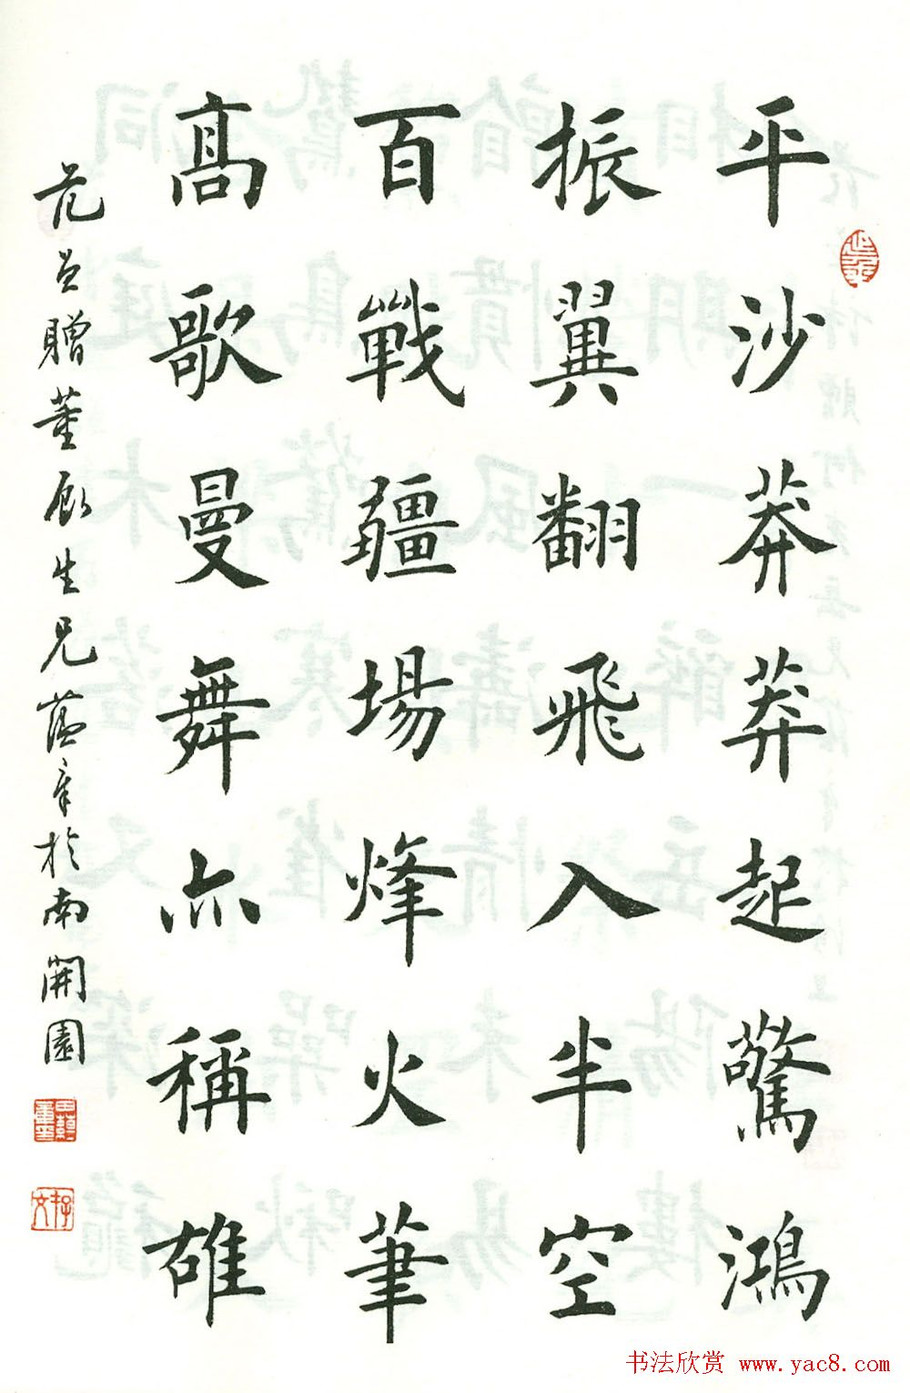 平沙莽莽起驚鴻
振翼翻飛入半空
百戰疆場烽火筆
髙歌曼舞亦稱雄
范曾贈董顧生兄蘊章於南開園
书法欣赏 www.yac8.com